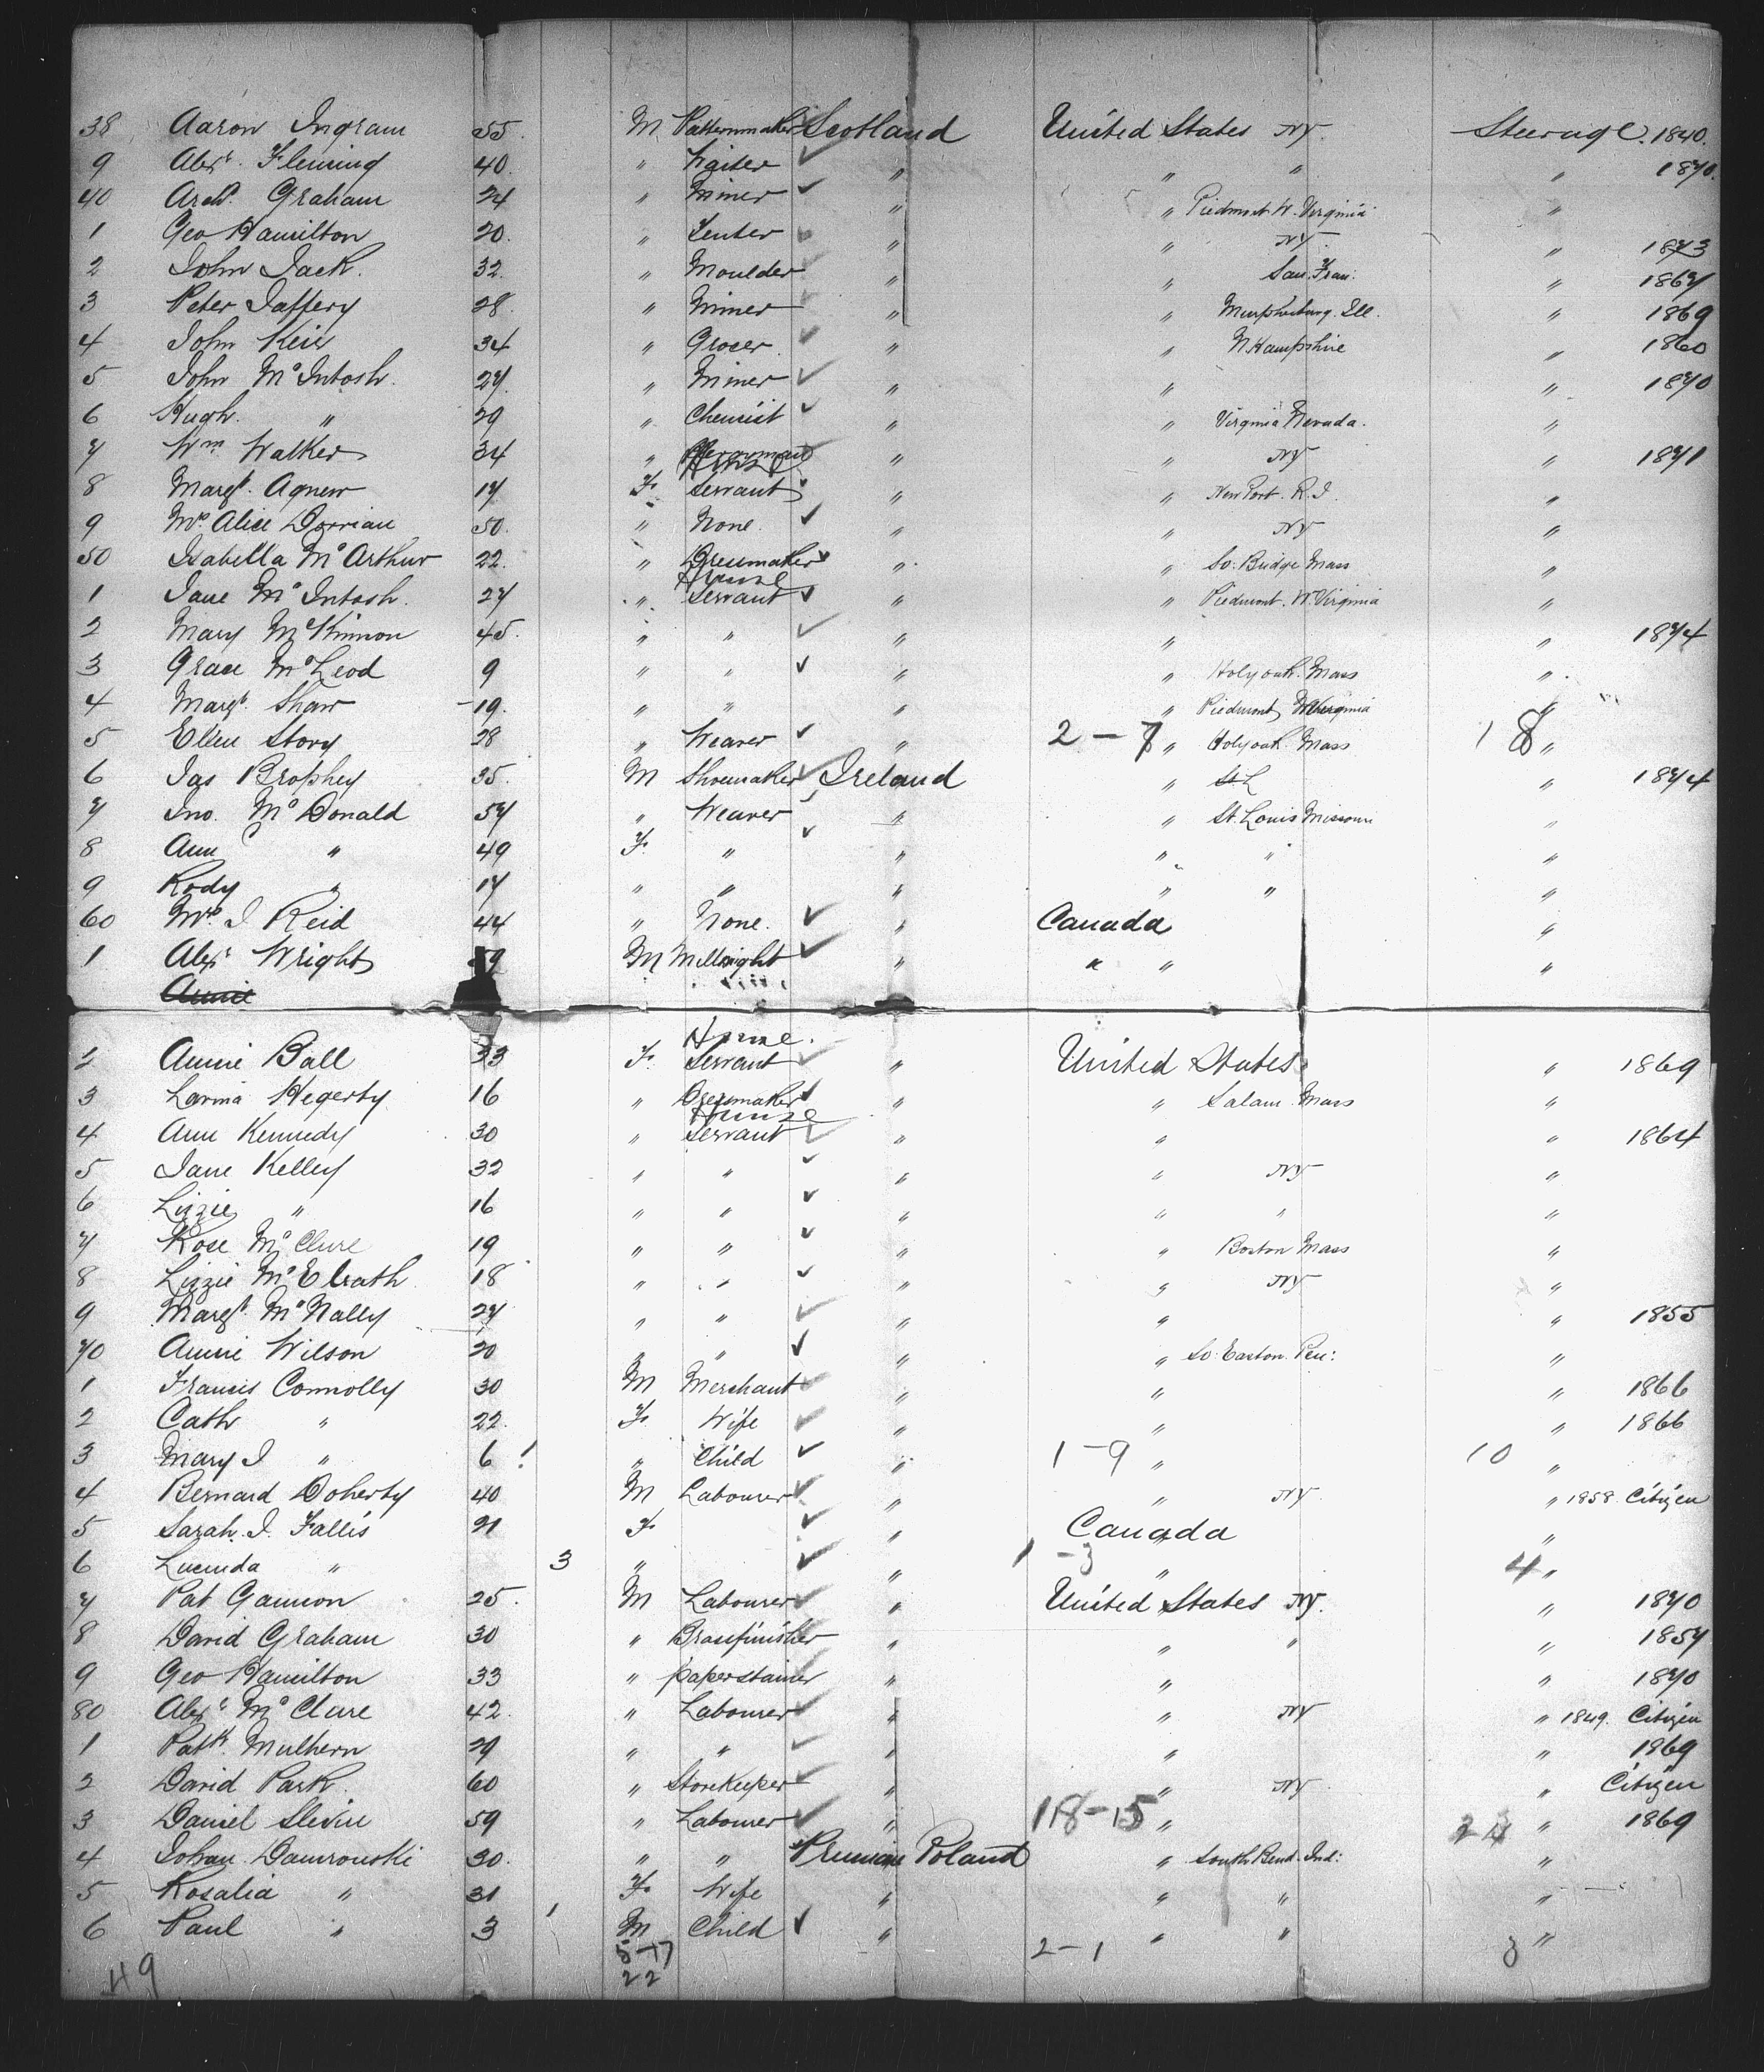 38 Aaron Ingram 55. M Patternmaker Scotland United States NY. Steerage. 1840.
9 Alexr. Fleming 40. " Waiter " " " " 1870.
40 Archd. Graham 24 " Miner " " Piedmont W. Virginia "
1 Geo Hamilton 20. " " " NY. " 1873
2 John Jack. 32. " Moulder " " San. Fran. " 1867
3 Peter Jaffery 28. " Miner " " Ill. " 1869
4 John Keir 34 " Grocer " " N. Hampshire " 1860
5 John McIntosh. 27. " Miner " " " 1870
6 Hugh. " 29 " Chemist " " Virginia Nevada. "
7 Wm Walker 34 " " " NY " 1871
8 Margt. Agnew 17 F. House Servant " " New Port. R. I. "
9 Mrs Alice Dorrian 50. " None. " " NY "
50 Isabella McArthur 22. " Dressmaker " " So. Bridge Mass "
1 Jane McIntosh. 27 " House Servant " " Piedmont. W. Virginia "
2 Mary McKinnon 45. " " " " " 1874
3 Grace McLeod 9 " " " " Holyoak. Mass "
4 Margt. Shaw 19. " " " " Piedmont W Virginia "
5 Ellen Story 28 " Weaver " 2-7 " Holyoak. Mass 18 "
6 Jas Brophey 35. M Shoemaker Ireland " St L " 1874
7 Jno. McDonald 57 " Weaver " " St. Louis Missouri "
8 Ann " 49 F. " " " " "
9 Rody " 17 " " " " " "
60 Mrs J Reid 44 " None. " Canada "
1 Alexr Wright 59 M Millwright " " " "
Annie
2 Annie Ball 33 F. House Servant " United States " 1869
3 Lavina Hegerty 16 " Dressmaker " " Salam. Mass "
4 Ann Kennedy 30 " House Servant " " " 1864
5 Jane Kelley 32 " " " " NY "
6 Lizzie " 16 " " " " " "
7 Rose McClure 19 " " " " Boston Mass "
8 Lizzie McElrath 18 " " " " NY "
9 Margt. McNally 27 " " " " " 1855
70 Annie Wilson 20 " " " " So. Easton. Pen: "
1 Francis Connolly 30 M Merchant " " " 1866
2 Cath " 22. F. Wife " " " 1866
3 Mary J " 6 " Child " 1-9 " 10 "
4 Bernard Doherty 40 M Labourer " " NY. " 1858. Citizen
5 Sarah. J. Fallis 21 F " Canada "
6 Lucinda " 3 " " 1-3 " 4 "
7 Pat Gannon 25. M Labourer " United States NY. " 1870
8 David Graham 30 " Brassfinisher " " " " 1857
9 Geo Hamilton 33 " paperstainer " " " 1870
80 Alexr McClure 42. " Labourer " " NY " 1849. Citizen
1 Patk. Mulhern 29 " " " " " 1869
2 David Park. 60 " Storekeeper " " NY. " Citizen
3 Daniel Slevin 59 " Labourer " 18-15 " " 1869
4 Johan Damrowski 30. " " Prussian Poland " South Bend. Ind: "
5 Rosalia " 31 F. Wife " " " "
6 Paul " 3 M Child " " " "
5-17 2-1 3
22
49